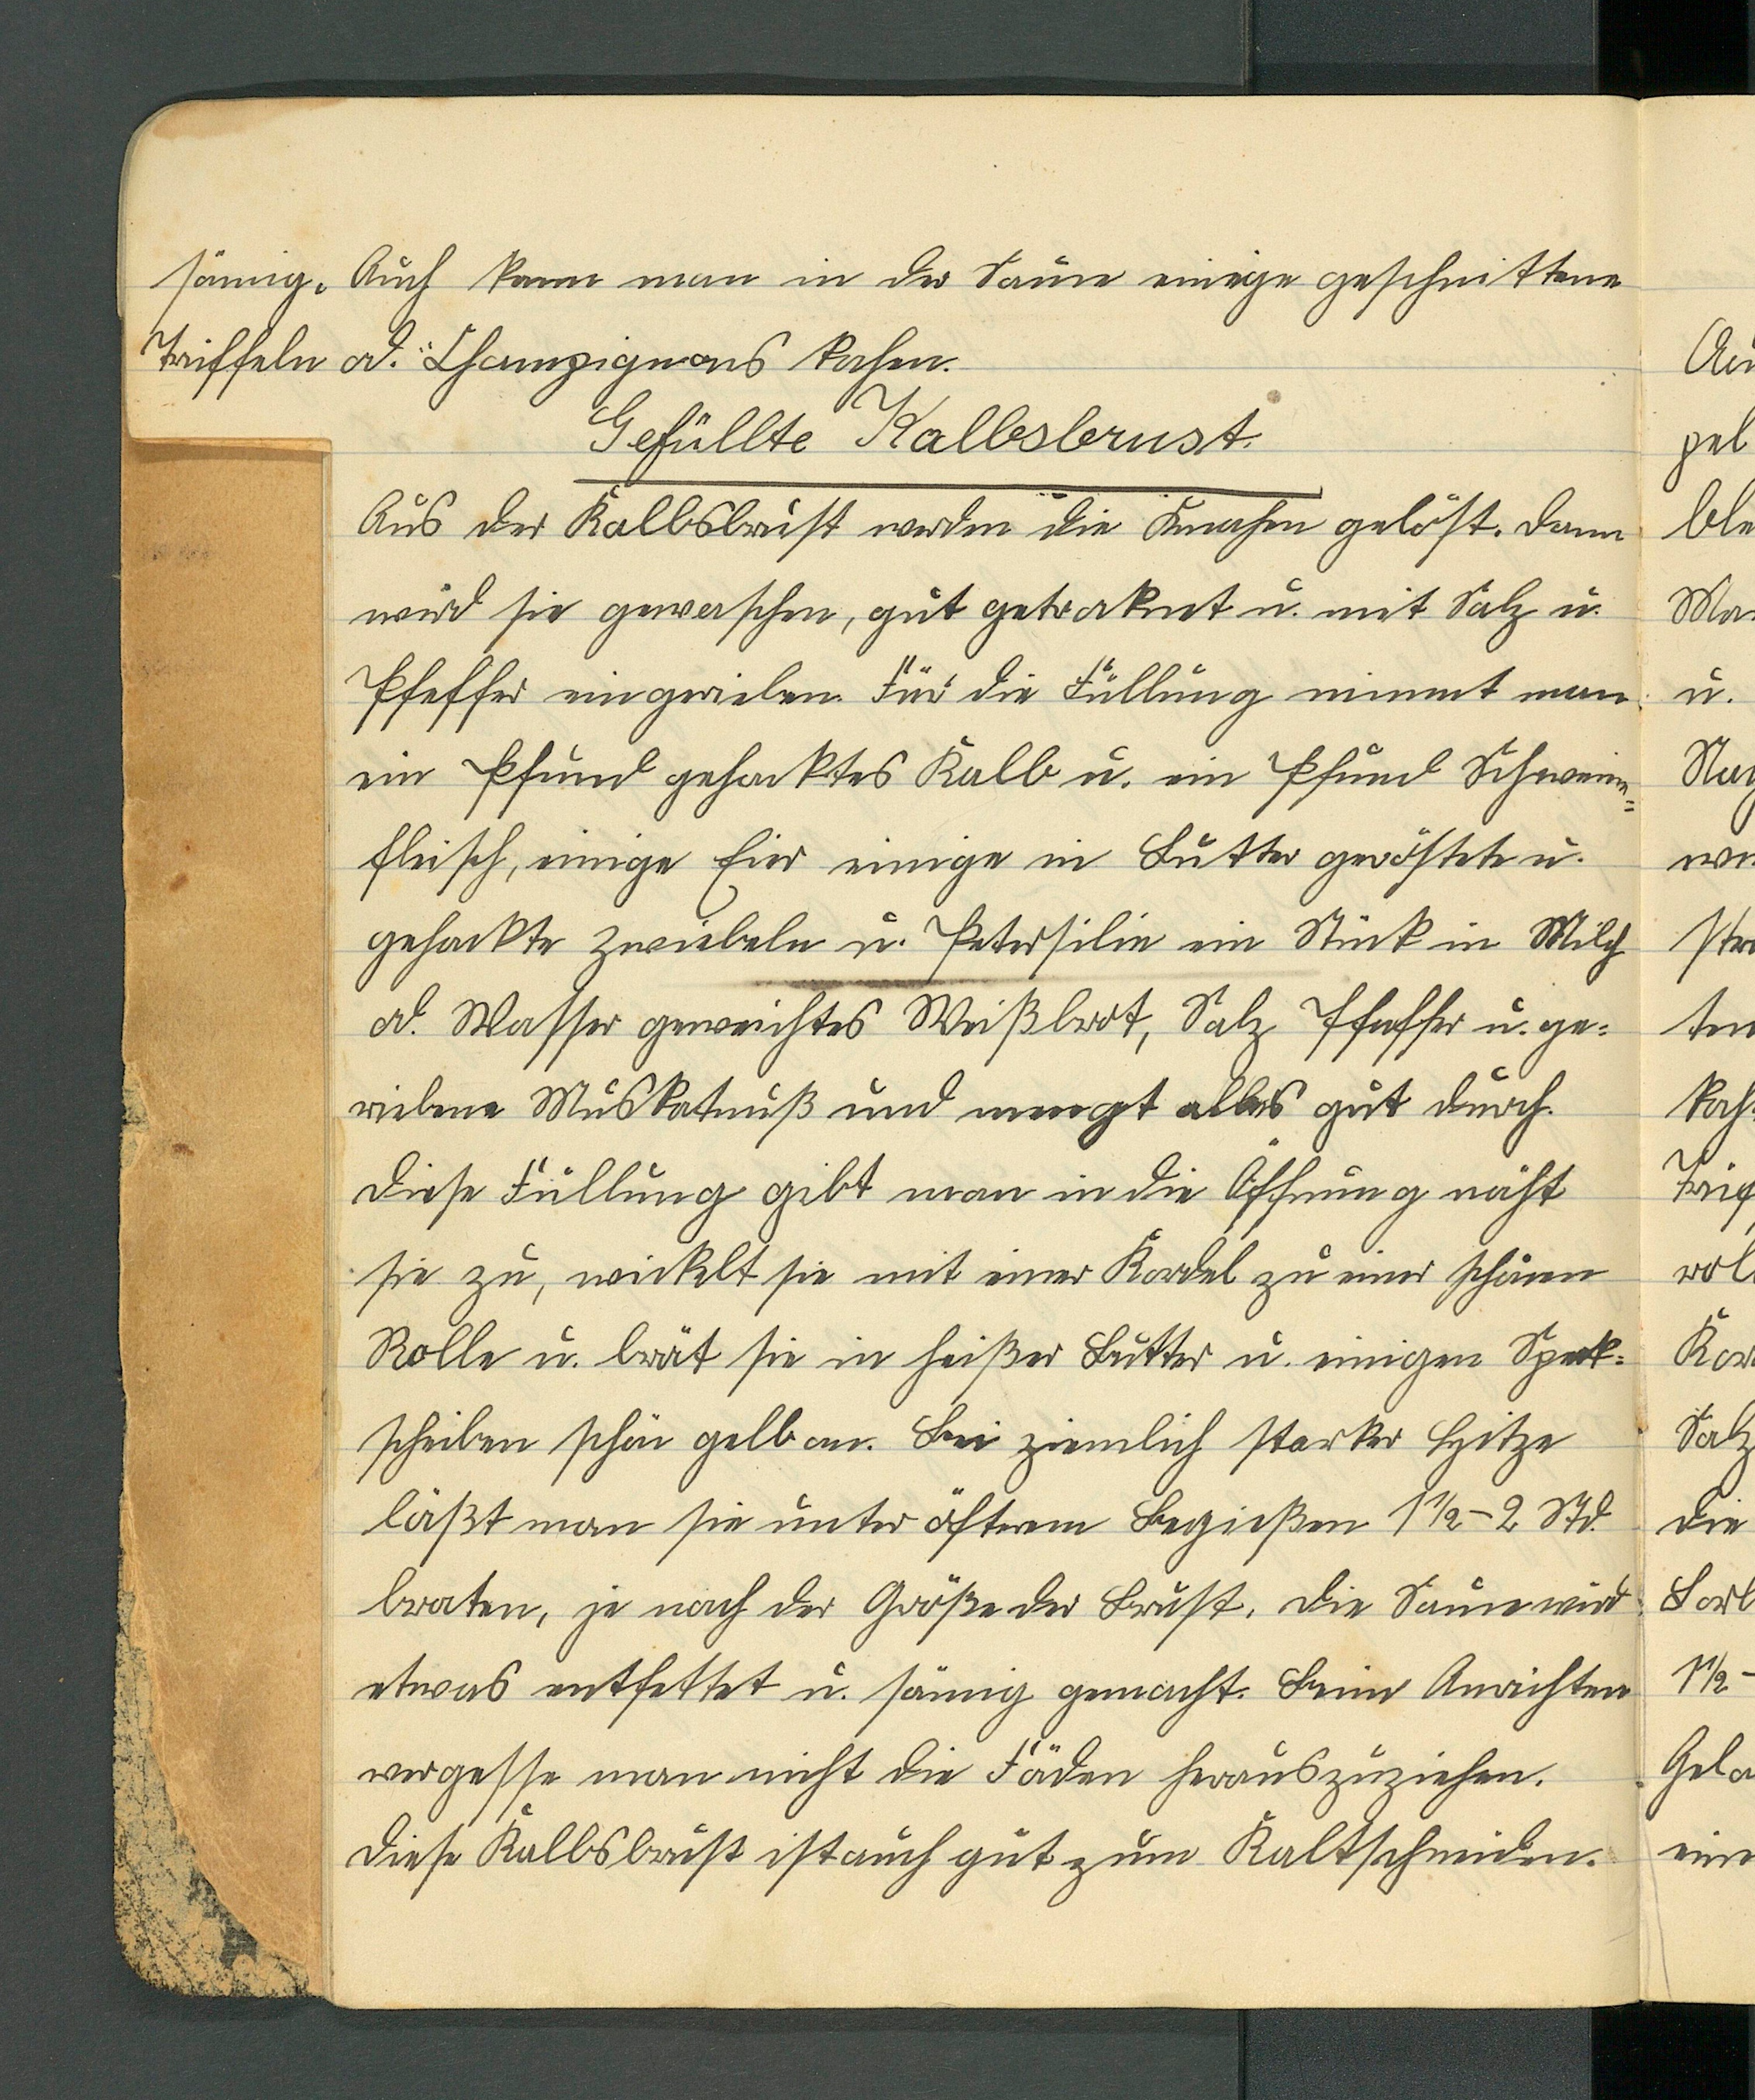 sämig. Auch kann man in der Sauce einige geschnittene
Trüffeln od. Champignons kochen.
Gefüllte Kalbsbrust.
Aus der Kalbsbrust werden die Knochen gelöst. Dann
wird sie gewaschen, gut getrocknet u. mit Salz u.
Pfeffer eingerieben. Für die Füllung nimmt man
ein Pfund gehacktes Kalb u. ein Pfund Schweine=
fleisch, einige Eier einige in Butter geröstete u.
gehackte Zwiebeln u. Petersilie ein Stück in Milch
od. Wasser geweichtes Weißbrot, Salz Pfeffer u. ge=
riebene Muskatnuß und mengt alles gut durch.
Diese Füllung gibt man in die Öffnung näht
sie zu, wickelt sie mit einer Kordel zu einer schönen
Rolle u. brät sie in heißer Butter u. einigen Speck=
scheiben schön gelb an. Bei ziemlich starker Hitze
läßt man sie unter öfterem Begießen 1½–2 Std.
braten, je nach der Größe der Brust. Die Sauce wird
etwas entfettet u. sämig gemacht. Beim Anrichten
vergesse man nicht die Fäden herauszuziehen.
Diese Kalbsbrust ist auch gut zum Kaltschneiden.